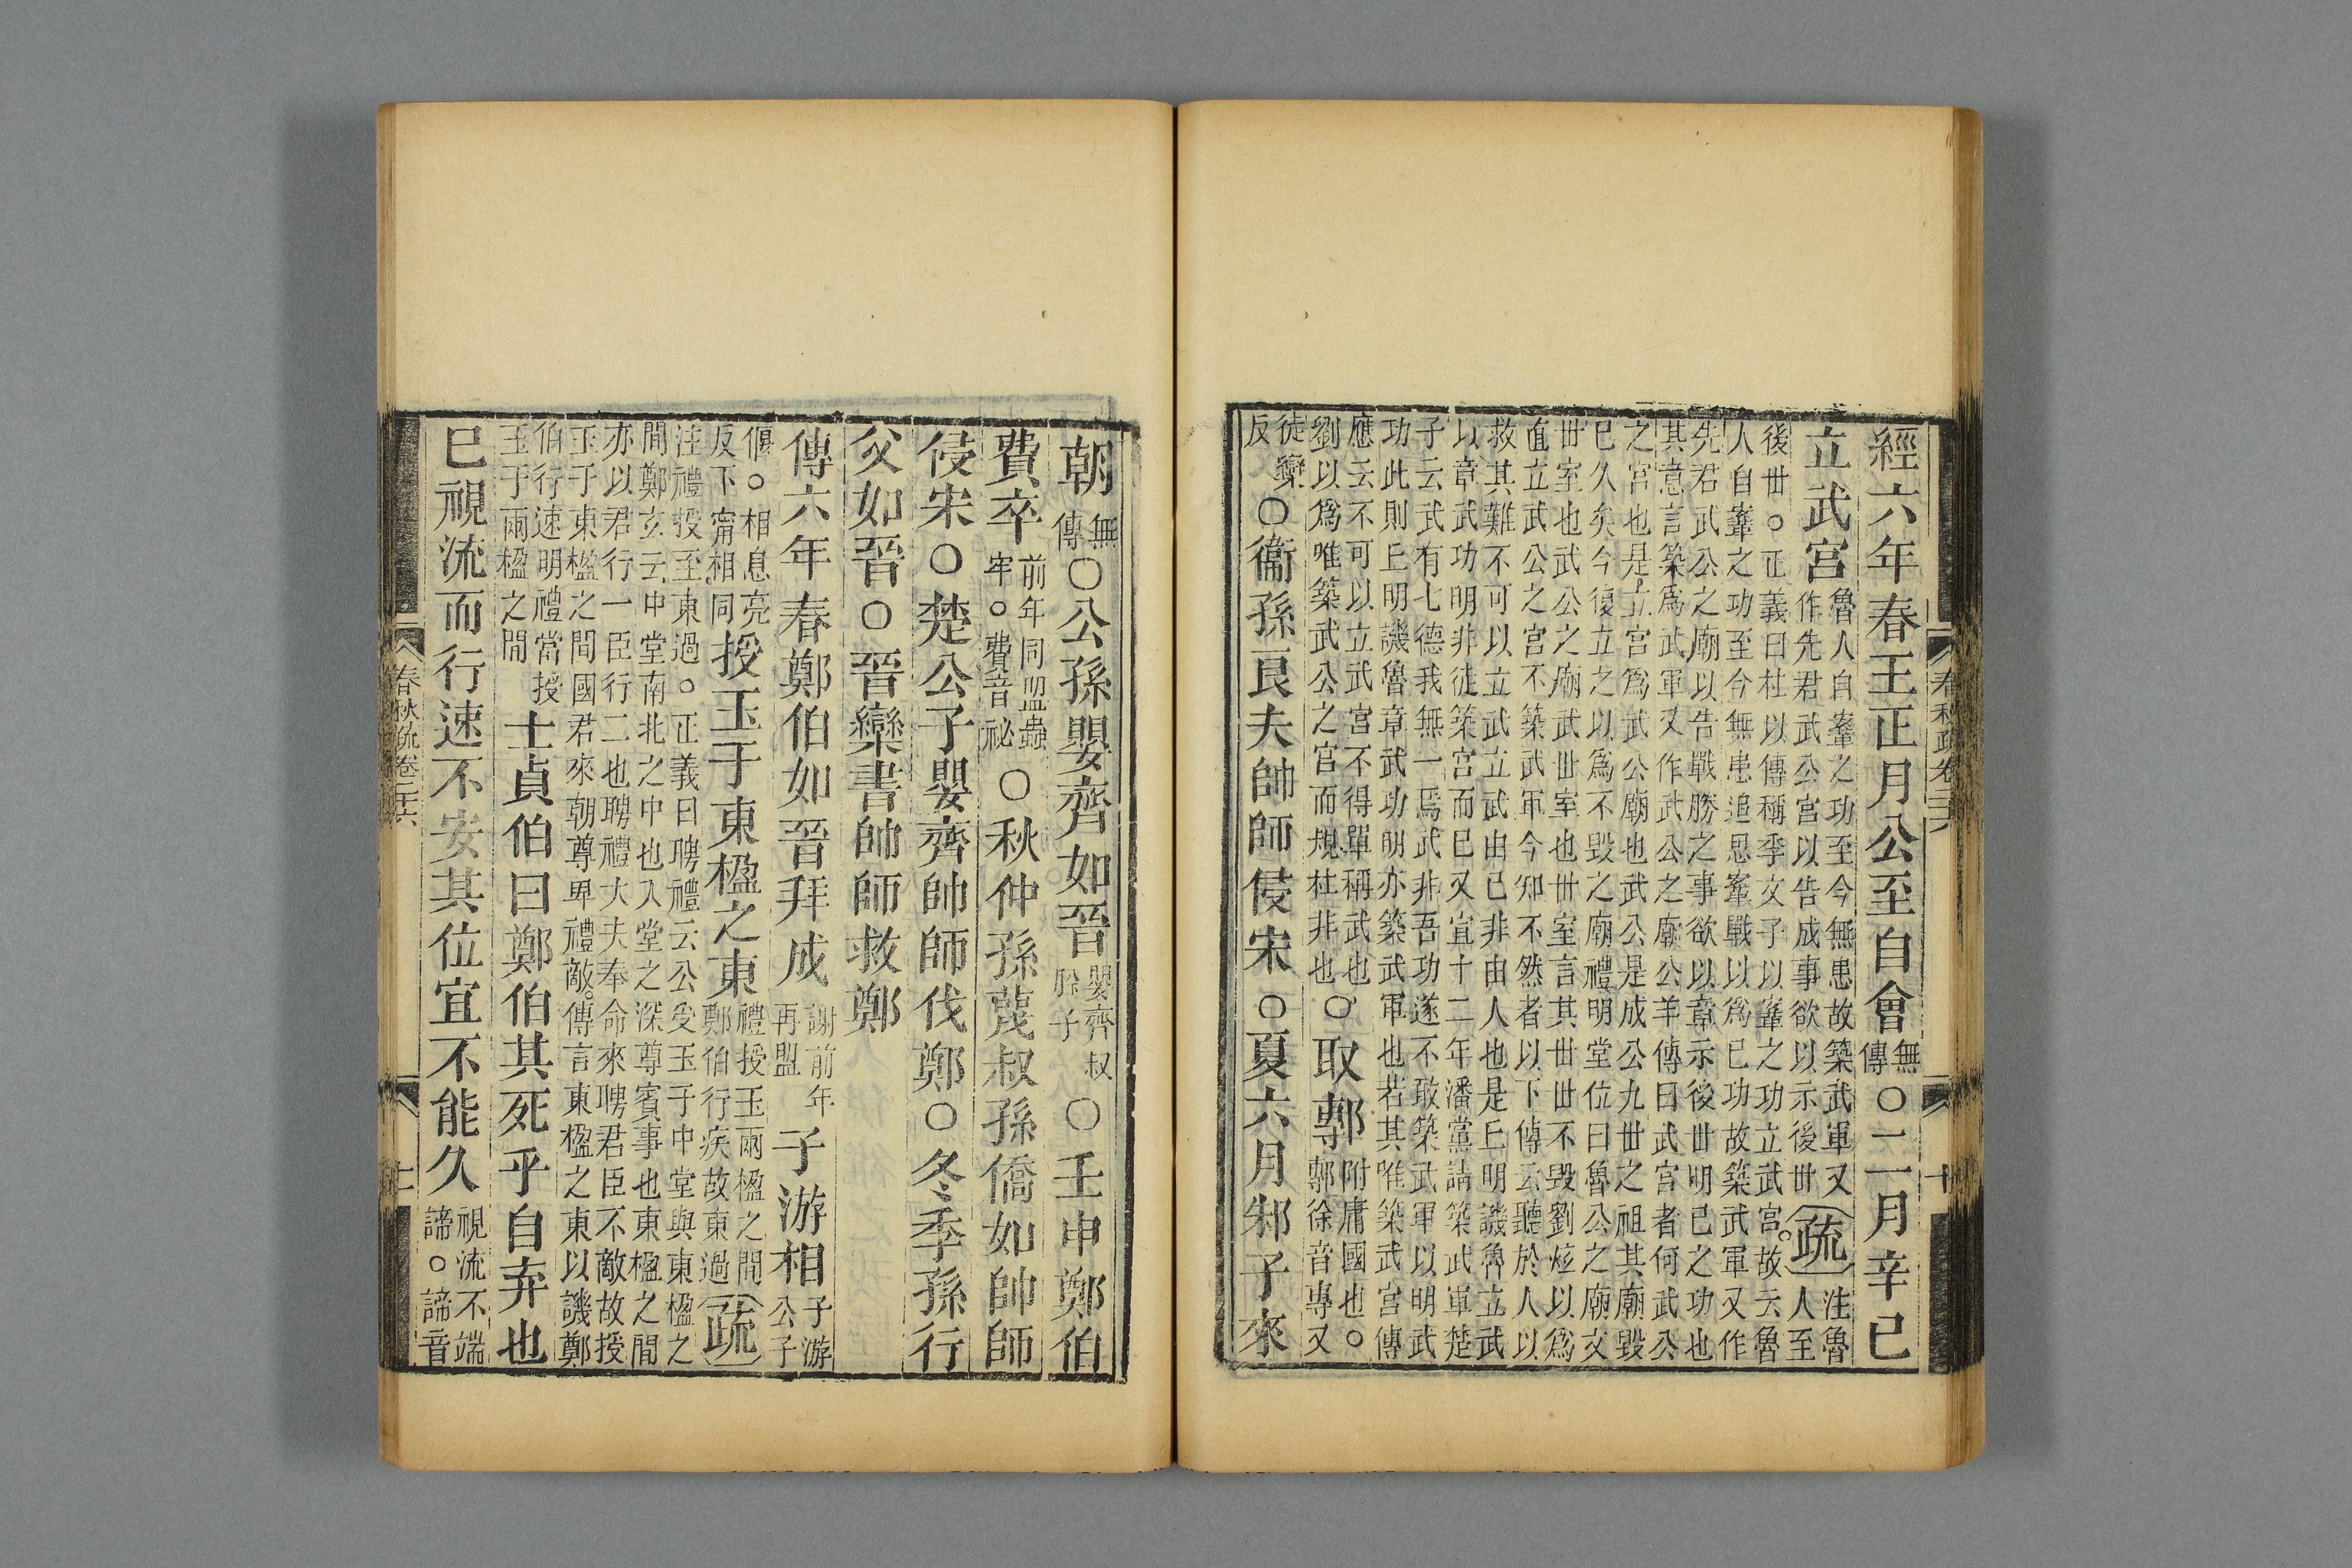 經六年春王正月公至自會無傳○二月辛巳
立武宮魯人自鞌之功至今無患故築武軍又作先君武公宮以告成事欲以示後世疏注魯人至
後世。正義曰杜以傳稱季文子以鞌之功立武宮故云魯
人自鞌之功至今無患追思鞌戰以爲己功故築武軍又作
先君武公之廟以告戰勝之事欲以章示後世明己之功也
其意言築爲武軍又作武公之廟公羊傳曰武宮者何武公
之宮也是立宮爲武公廟也武公是成公九世之祖其廟毀
已久矣今復立之以爲不毀之廟禮明堂位曰魯公之廟文
世室也武公之廟武世室也世室言其世世不毀劉炫以爲
直立武公之宮不築武軍今知不然者以下傳云聽於人以
救其難不可以立武立武由己非由人也是丘明譏魯立武
以章武功明非徒築宮而已又宣十二年潘黨請築武軍楚
子云武有七德我無一焉武非吾功遂不敢築武軍以明武
功此則丘明譏魯章武功明亦築武軍也若其唯築武宮傳
應云不可以立武宮不得單稱武也
劉以爲唯築武公之宮而規杜非也○取鄟附庸國也。鄟徐音專又
徒臠反○衞孫良夫帥師侵宋○夏六月邾子來
春秋疏卷二十六
十
朝無傳○公孫嬰齊如晉嬰齊叔肸子○壬申鄭伯
費卒前年同盟蟲牢。費音祕○秋仲孫蔑叔孫僑如帥師
侵宋○楚公子嬰齊帥師伐鄭○冬季孫行
父如晉○晉欒書帥師救鄭
傳六年春鄭伯如晉拜成謝前年再盟子游相子游公子
偃。相息亮反下甯相同授玉于東楹之東禮授玉兩楹之間鄭伯行疾故東過疏
注禮授至東過。正義曰聘禮云公受玉于中堂與東楹之
間鄭玄云中堂南北之中也入堂之深尊賓事也東楹之間
亦以君行一臣行二也聘禮大夫奉命來聘君臣不敵故授
玉于東楹之間國君來朝尊卑禮敵。傳言東楹之東以譏鄭
伯行速明禮當授
玉于兩楹之間士貞伯曰鄭伯其死乎自弃也
已視流而行速不安其位宜不能久視流不端諦。諦音
春秋疏卷二十六
十一